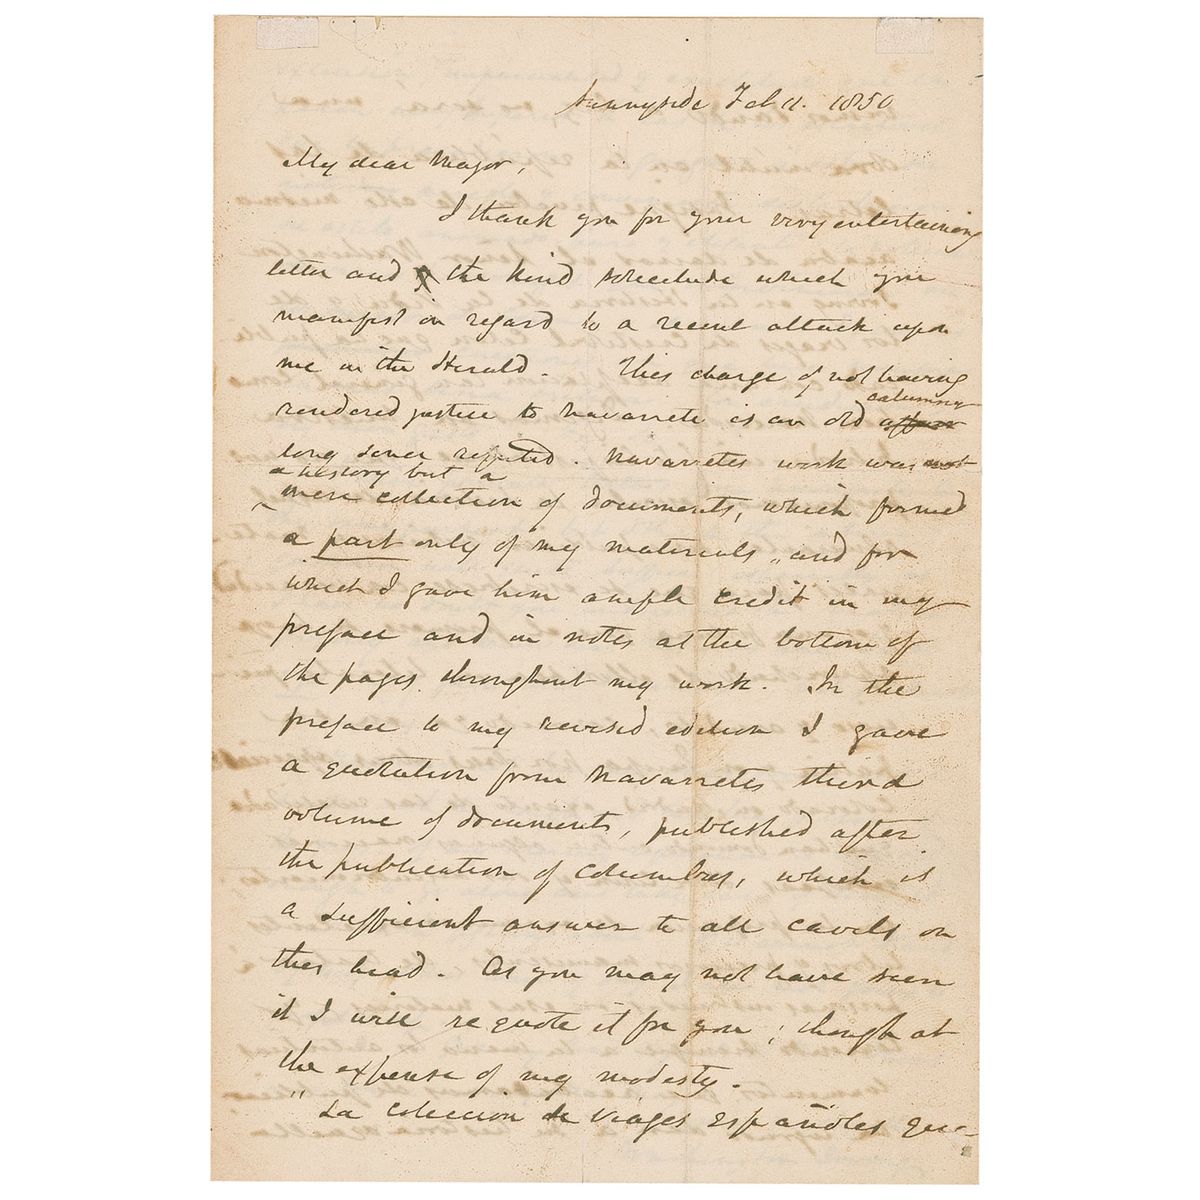 Sunnyside Feb 11. 1850
My dear Major,
I thank you for your very entertaining
letter and the kind solicitude which you
manifest in regard to a recent attack upon
me in the Herald. This charge of not having
rendered justice to Navarrete is an old calumny
long since refuted. Navarretes work was not
a history but a
mere collection of documents, which formed
a part only of my materials, and for
which I gave him ample credit in my
preface and in notes at the bottom of
the pages throughout my work. In the
preface to my revised edition I gave
a quotation from Navarretes third
volume of documents, published after
the publication of Columbus, which is
a sufficient answer to all cavils on
this head. As you may not have seen
it I will re quote it for you; though at
the expense of my modesty.
"La coleccion de Viages Españoles que